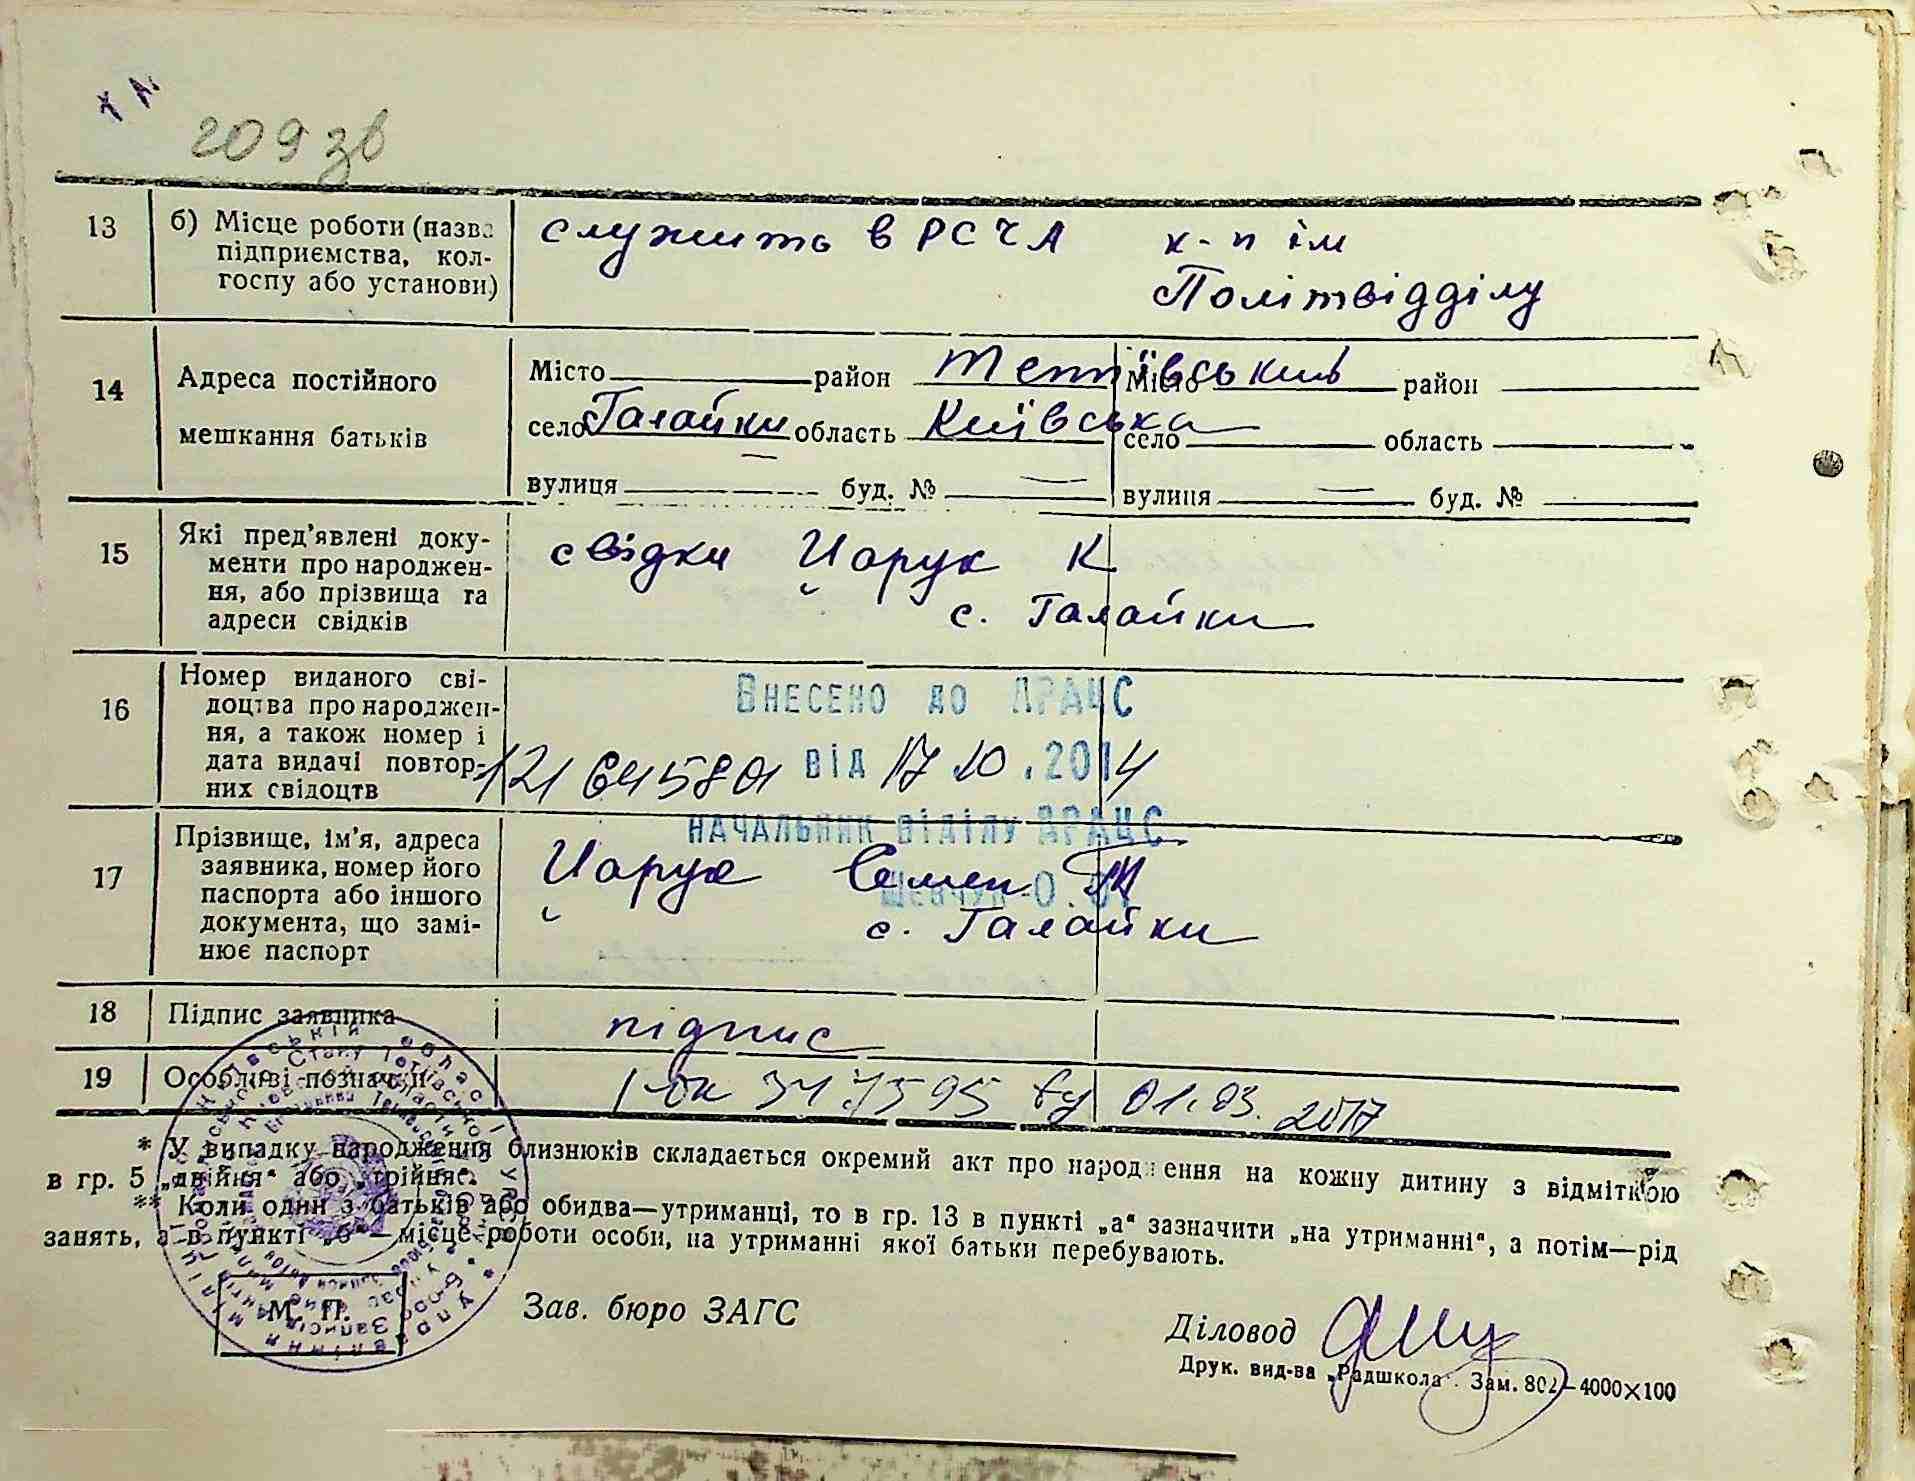 209 зв
13 б) Місце роботи (назва служить в РСЧА к-п ім
підприємства, кол- Політвідділу
госпу або установи)
14 Адреса постійного Місто район Тетіївський Місто район
мешкання батьків село Галайки область Київська село область
вулиця — буд. № — вулиця — буд. №
15 Які пред'явлені доку- свідки Царук К
менти про народжен- с. Галайки
ня, або прізвища та
адреси свідків
16 Номер виданого сві- Внесено до ДРАЦС
доцтва про народжен-
ня, а також номер і
дата видачі повтор- від 17 10 . 2014
них свідоцтв
начальник відділу ДРАЦС
17 Прізвище, ім'я, адреса Царук Семен
заявника, номер його Шевчук О.
паспорта або іншого с. Галайки
документа, що замі-
нює паспорт
18 Підпис заявника підпис
19 Особливі позначки 01.03. 2017
* У випадку народження близнюків складається окремий акт про народження на кожну дитину з відміткою
в гр. 5 „двійня" або „трійня".
** Коли один з батьків або обидва—утриманці, то в гр. 13 в пункті „а" зазначити „на утриманні", а потім—рід
занять, а в пункті „б"—місце роботи особи, на утриманні якої батьки перебувають.
М. П. Зав. бюро ЗАГС
Діловод
Друк. вид-ва „Радшкола". Зам. 802—4000×100